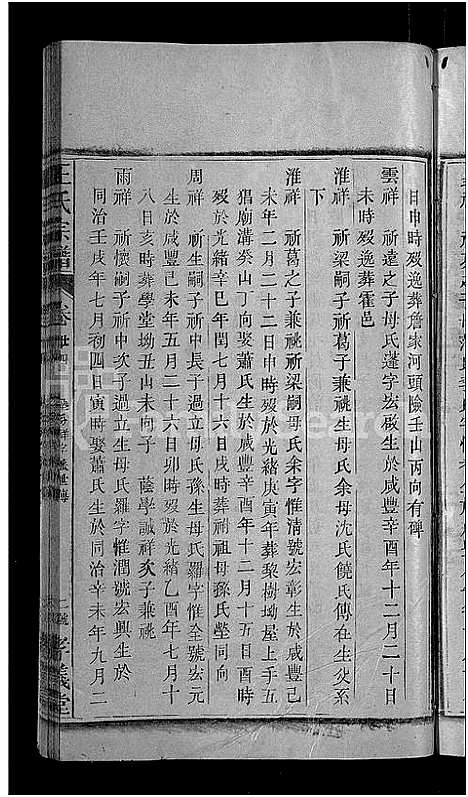 日申時歿逸葬詹家河頭險壬山丙向有碑
雲祥　祈遠之子母氏蓬字宏啟生於咸豐辛酉年十二月二十日
未時歿逸葬霍邑
淮祥　祈梁嗣子祈葛子兼祧生母氏余母沈氏饒氏傳在生父系
下
淮祥　祈葛之子兼祧祈梁嗣母氏余字惟清號宏彰生於咸豐己
未年二月二十二日申時歿於光緒庚寅年葬黎樹坳屋上手五
猖廟溝癸山丁向娶蕭氏生於咸豐辛酉年十二月十五日酉時
歿於光緒辛巳年閏七月十六日戌時葬祖母孫氏塋同向
周祥　祈生嗣子祈中長子過立母氏孫生母氏羅字惟全號宏元
生於咸豐己未年五月二十六日卯時歿於光緒乙酉年七月十
八日亥時葬學堂坳丑山未向子　蔭學誠祥次子兼祧
雨祥　祈懷嗣子祈中次子過立生母氏羅字惟潤號宏興生於
同治壬戌年七月初四日寅時娶蕭氏生於同治辛未年九月二
王氏宗譜　卷廿四
孝義堂